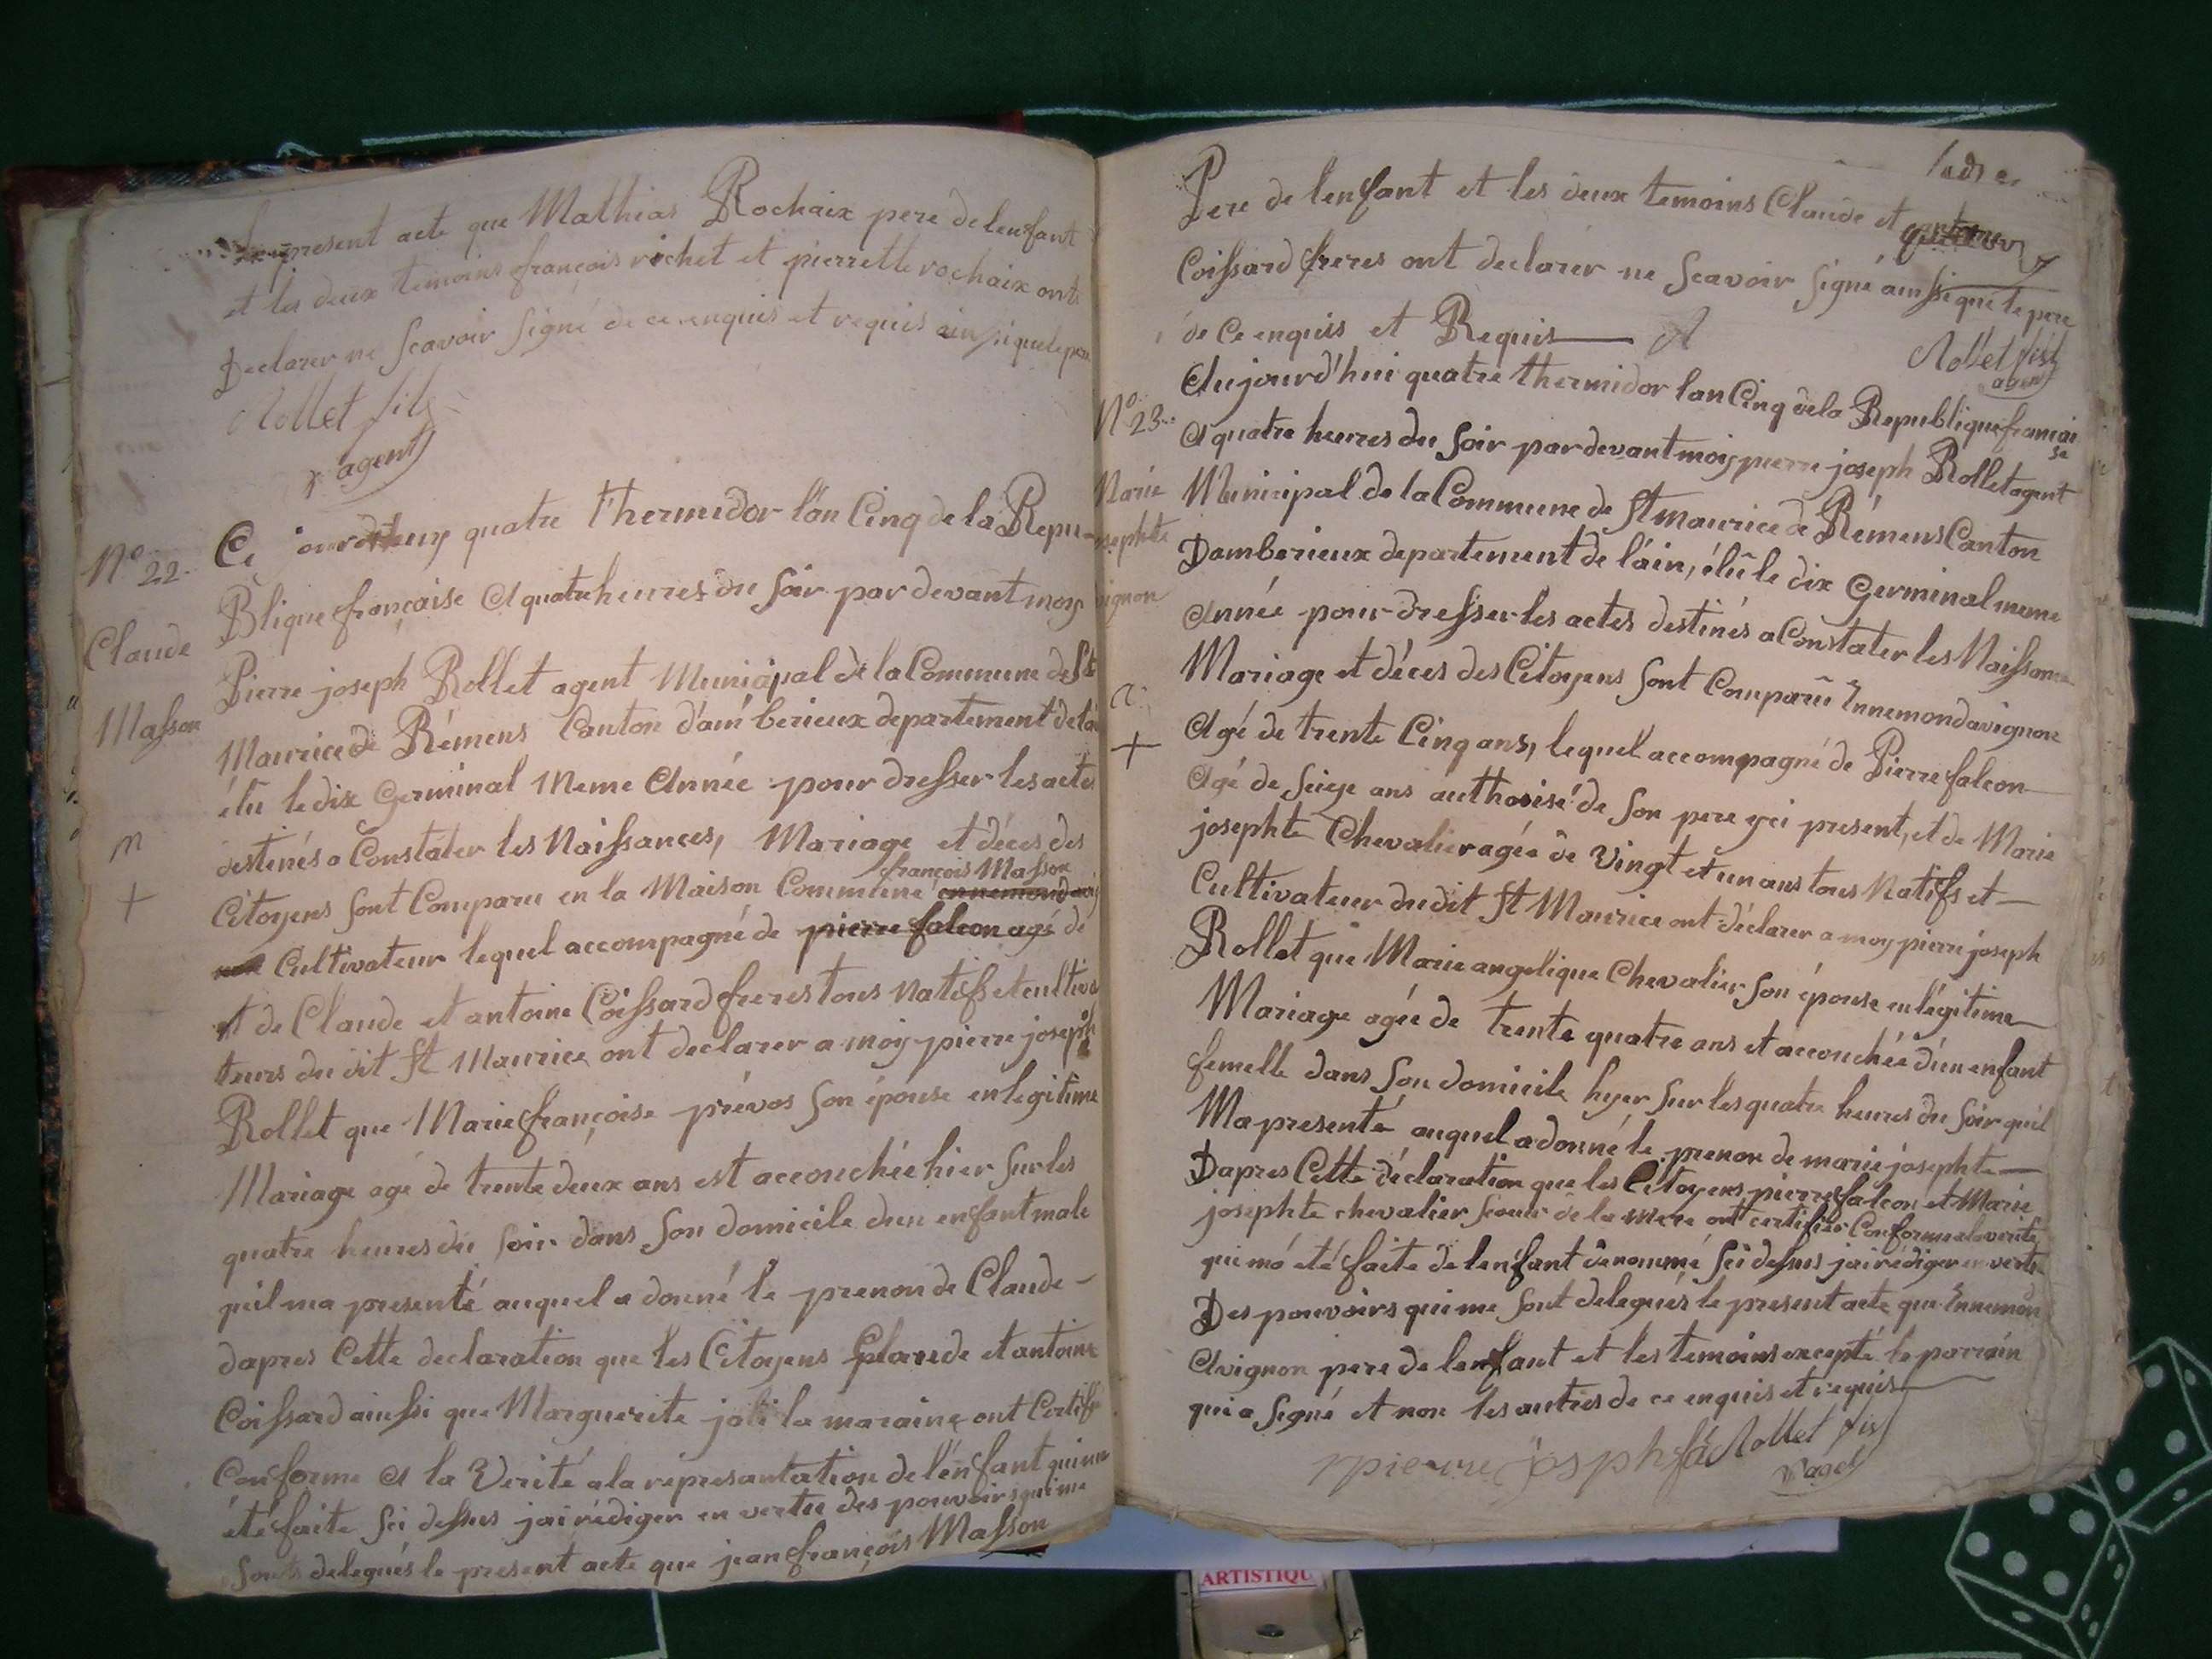 present acte que Mathias Rochaix pere de lenfant
et les deux temoins françois rochet et pierrette rochaix ont
Declarer ne Scavoir Signé de ce enquis et requis ainsi que le pere
Rollet fils
agent
N° 22.
Claude
Masson
m
+
Ce jourdhuy quatre Thermidor l'an Cinq de la Repu-
Blique française A quatre heures du Soir par devant moy
Pierre joseph Rollet agent Municipal de la Commune de St
Maurice de Rémens Canton d'am berieux departement de
élu le dix Germinal Meme Année pour dresser les actes
destinés a Constater les Naissances, Mariage et déces des
françois Masson
Citoyens Sont Comparu en la Maison Commune ennemond
Cultivateur lequel accompagné de pierre falcon agé de
et de Claude et antoine Coissard freres tous Natifs et cultiva
teurs du dit St Maurice ont declarer a moy pierre joseph
Rollet que Marie françoise prévos Son épouse en legitime
Mariage agé de trente deux ans est accouchée hier Sur les
quatre heures du Soir dans Son domicile d'un enfant male
quil ma presenté auquel a donné le prenon de Claude -
dapres Cette declaration que les Citoyens Claude et antoine
Coissard ainssi que Marguerite joli la maraine ont Certifi
Conforme A la Verité a la représantation de l'énfant qui m
été faite Sci dessus jai rédiger en vertu des pouvoirs qui me
Sont delegués le present acte que jean françois Masson
Pere de lenfant et les deux temoins Claude et antoine
Coissard freres ont declarer ne Scavoir Signé ainssi que le pere
de Ce enquis et Requis
Rollet fils
agent
N° 23.
Marie
josephte
avignon
+
Aujourd'hui quatre thermidor lan Cinq de la Republique françai
se
A quatre heures du Soir par devant moy pierre joseph Rollet agent
Municipal de la Commune de St Maurice de Rémens Canton
Damberieux departement de láin, élû le dix Germinal meme
Année pour dresser les actes destinés a Constater les Naissance
Mariage et déces des Citoyens Sont Comparû Ennemond avignon
Agé de trente Cinq ans, lequel accompagné de Pierre falcon
Agé de Seize ans authorisé de Son pere yci present, et de Marie
josephte Chevalier agée de Vingt et un ans tous Natifs et
Cultivateur du dit St Maurice ont déclarer a moy pierre joseph
Rollet que Marie angelique Chevalier Son épouse en légitime
Mariage agée de trente quatre ans et accouchée d'un enfant
femelle dans Son domicile hyer Sur les quatre heures du Soir quil
Ma presenté auquel a donné le prenon de marie josephte
Dapres Cette déclaration que les Citoyens pierre falcon et Marie
josephte chevalier Soeur de la Mere ont certifier Conforme a la verité
qui má été faite de lenfant dénommé Sci dessus jai rédiger en vertu
Des pouvoirs qui me Sont delegués le present acte que Ennemond
Avignon pere de lenfant et les temoins excepté le parrain
qui a Signé et non les autres de ce enquis et requis
pierre josph Rollet fils
agent
ARTISTIQU